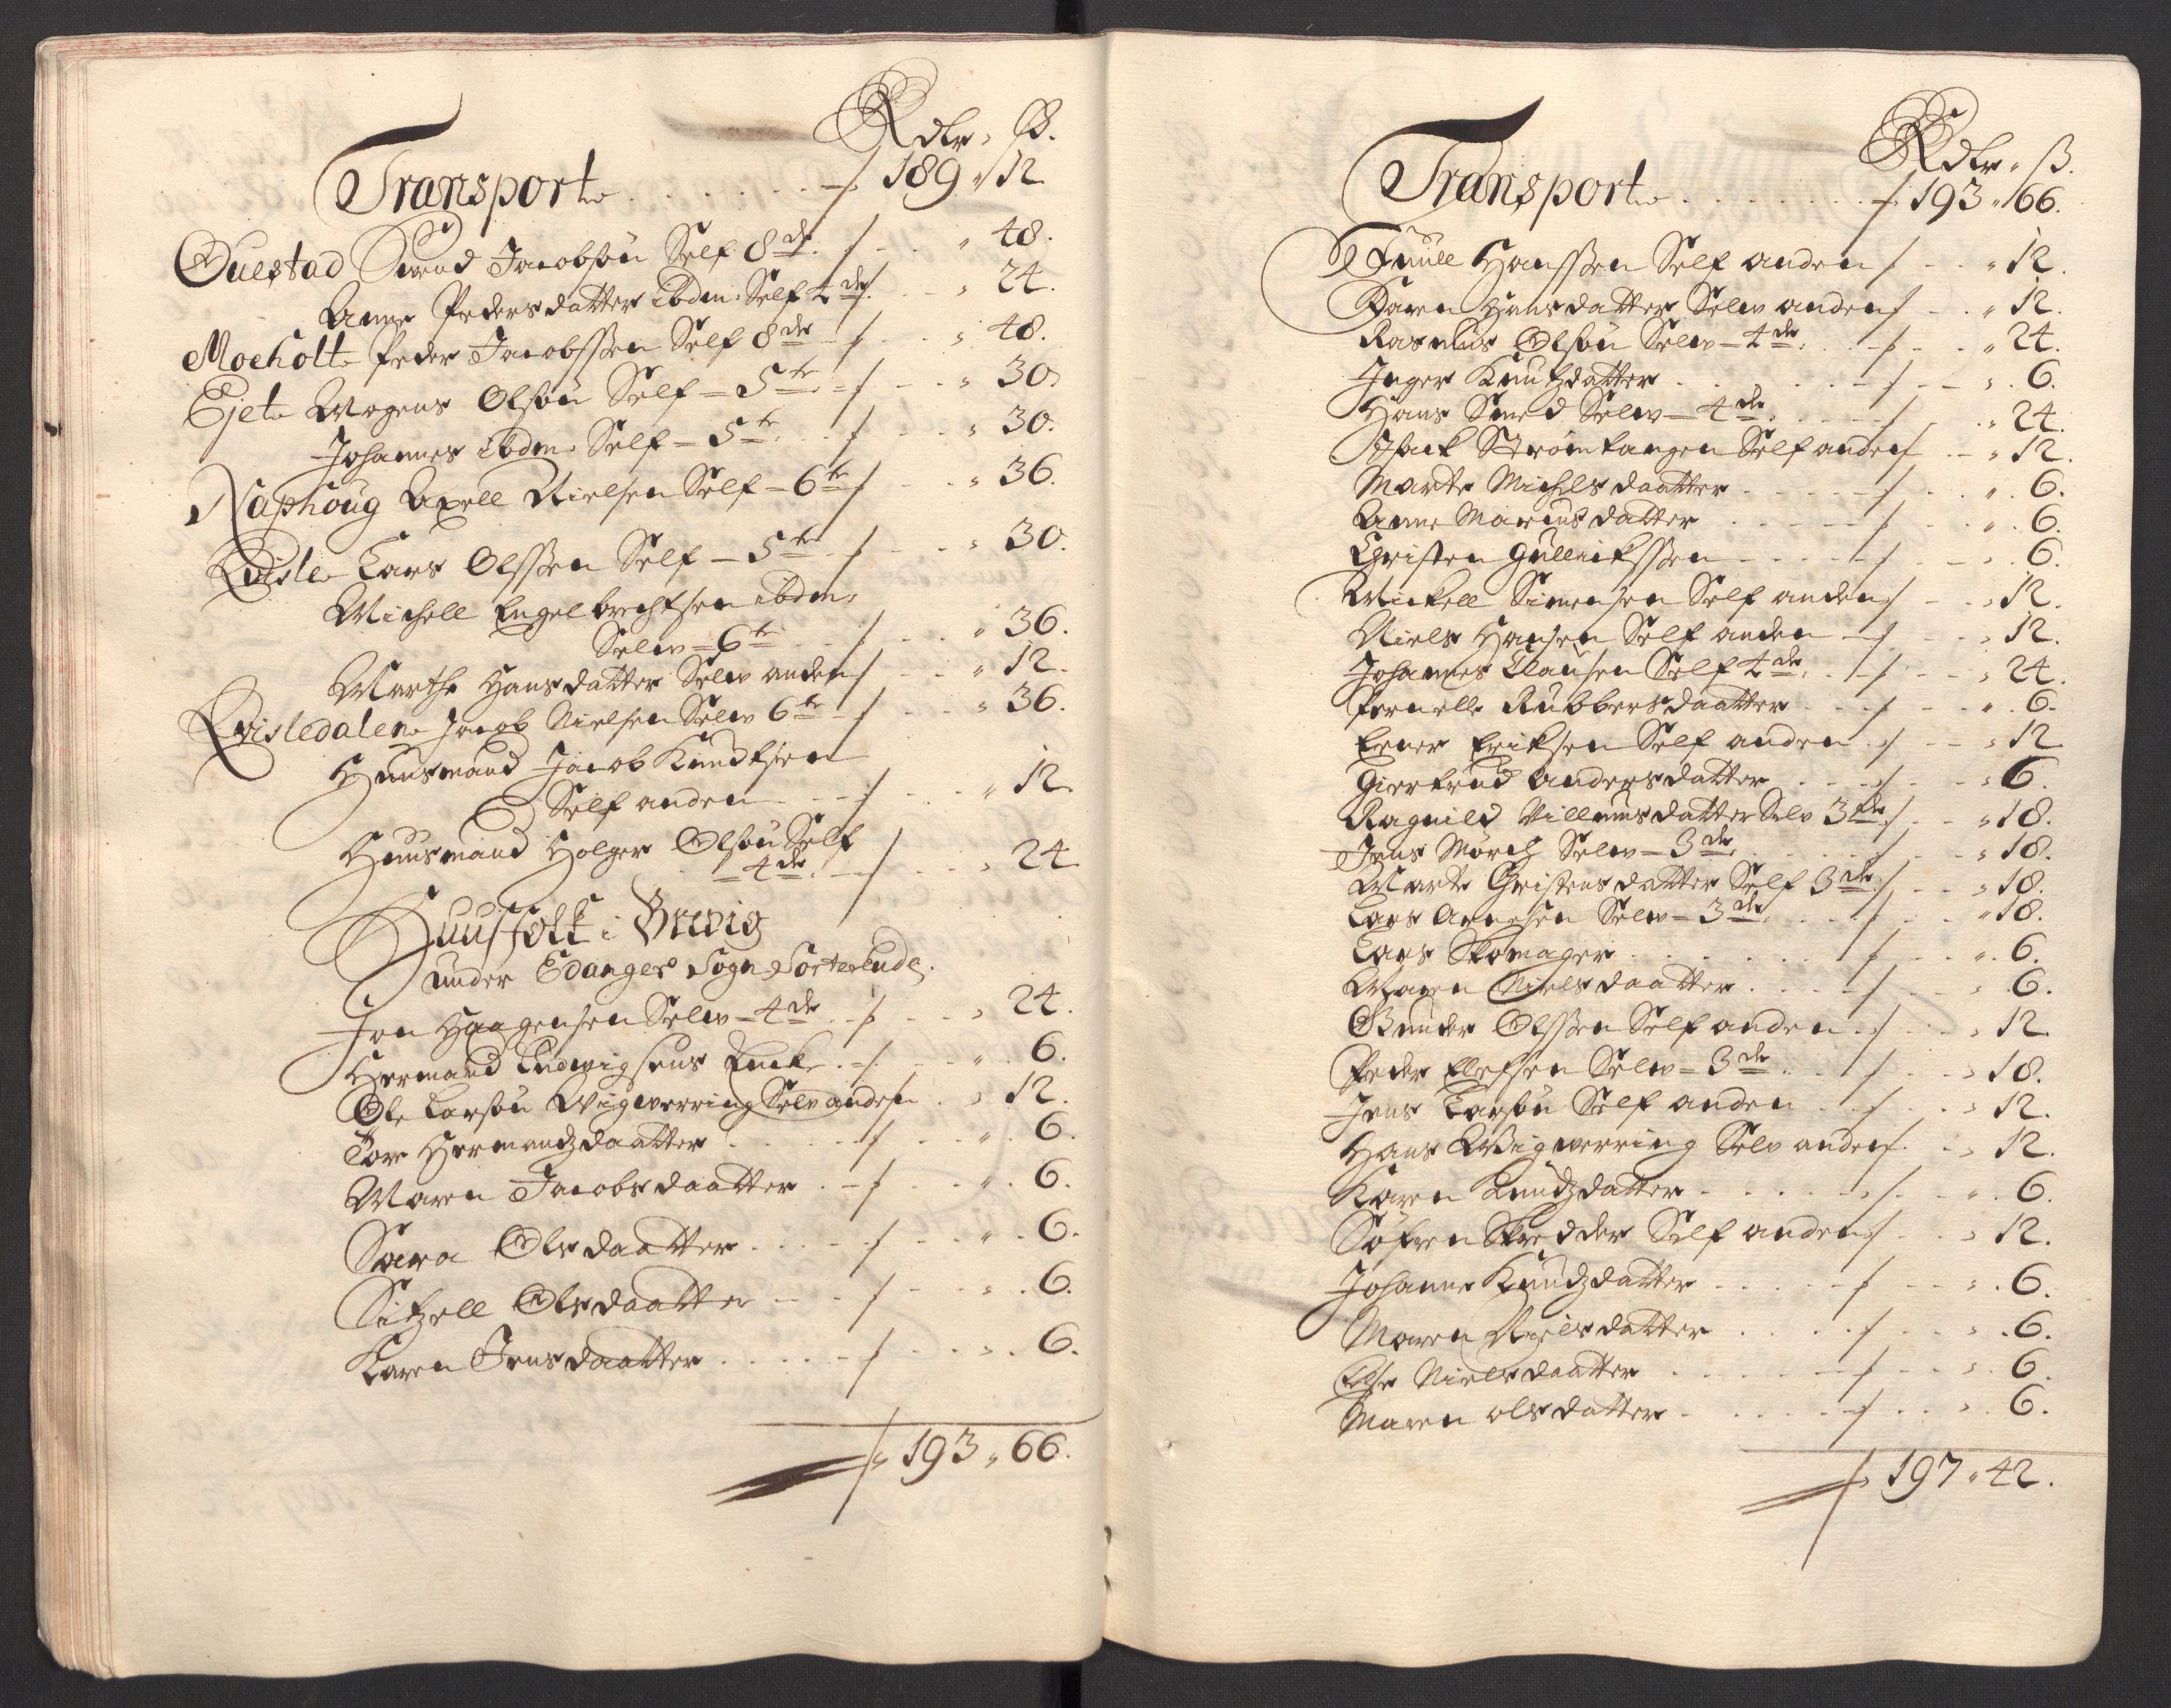 Rdlr. ß.
Transporte . . . . . . . 189 " 12
Ouestad Svend Jacobsøn Self 8de . . " 48.
Anne Pedersdatter ibdm. Self 4de . . " 24.
Moeholt Peder Jacobssen Self 8de . . " 48.
Ejet Mogens Olsøn Self = 5te . . " 30.
Johannes ibdm. Self = 5te . . " 30.
Naphoug Axell Nielsen Self = 6te . . " 36.
Qvisle Lars Olssen Self = 5te . . " 30.
Michell Engelbrechtsen ibdm.
Selv = 6te . . " 36.
Marthe Hansdatter Selv anden . . " 12.
Qvisledalen Jacob Nielsen Selv 6te . . " 36.
Huusmand Jacob Knudtsen
Self anden . . " 12.
Huusmand Holger Olsøn Self
= 4de . . " 24
Huusfolk i Brevig
under Edanger Sogn Sorterende.
Jon Haagensen Selv = 4de . . " 24.
Hermand Ludvigsens Encke . . " 6.
Ole Larsøn Wigverring Selv anden . . " 12.
Tore Hermandzdaatter . . . " 6.
Maren Jacobsdaatter . . " 6.
Sara Olsdaatter . . . " 6.
Sitzell Olsdaatter . . " 6.
Karen Jensdaatter . . . " 6.
193 " 66.
Rdlr. ß.
Transporte . . . . . . . 193 " 66.
Juull Hanssen Self anden . . " 12.
Karen Hansdatter Selv anden . . " 12.
Rasmus Olsøn Selv = 4de . . " 24.
Inger Knutzdatter . . . " 6.
Hans Smed Selv = 4de . . " 24.
Isack Strømtangen Self anden . . " 12.
Marte Michelsdaatter . . . " 6.
Anne Marcusdatter . . . " 6.
Christen Gullickssen . . . " 6.
Mickell Simensen Self anden . . " 12.
Niels Hansen Self anden . . " 12.
Johannes Clausen Self 4de . . " 24.
Pernelle Rubbersdaatter . . . " 6.
Ener Eriksen Self anden . . " 12
Giertrud Andersdatter . . . " 6.
Ragnild Villumsdatter Selv 3de . . " 18.
Jens Mørch Selv = 3de . . " 18.
Marte Christensdatter Self 3de . . " 18.
Lars Arnesen Selv = 3de . . " 18.
Lars Skomager . . . " 6.
Maren Nielsdaatter . . . " 6.
Gunder Olssen Self anden . . " 12.
Peder Ellefsen Selv = 3de . . " 18.
Jens Larsøn Self anden . . " 12.
Hans Wigverring Selv anden . . " 12.
Karen Knudzdatter . . . " 6.
Søfren Skredder Self anden . . " 12.
Johanne Knudzdatter . . . " 6.
Maren Nielsdatter . . . " 6.
Else Nielsdaatter . . . " 6.
Maren Olsdatter . . . " 6.
197 " 42.